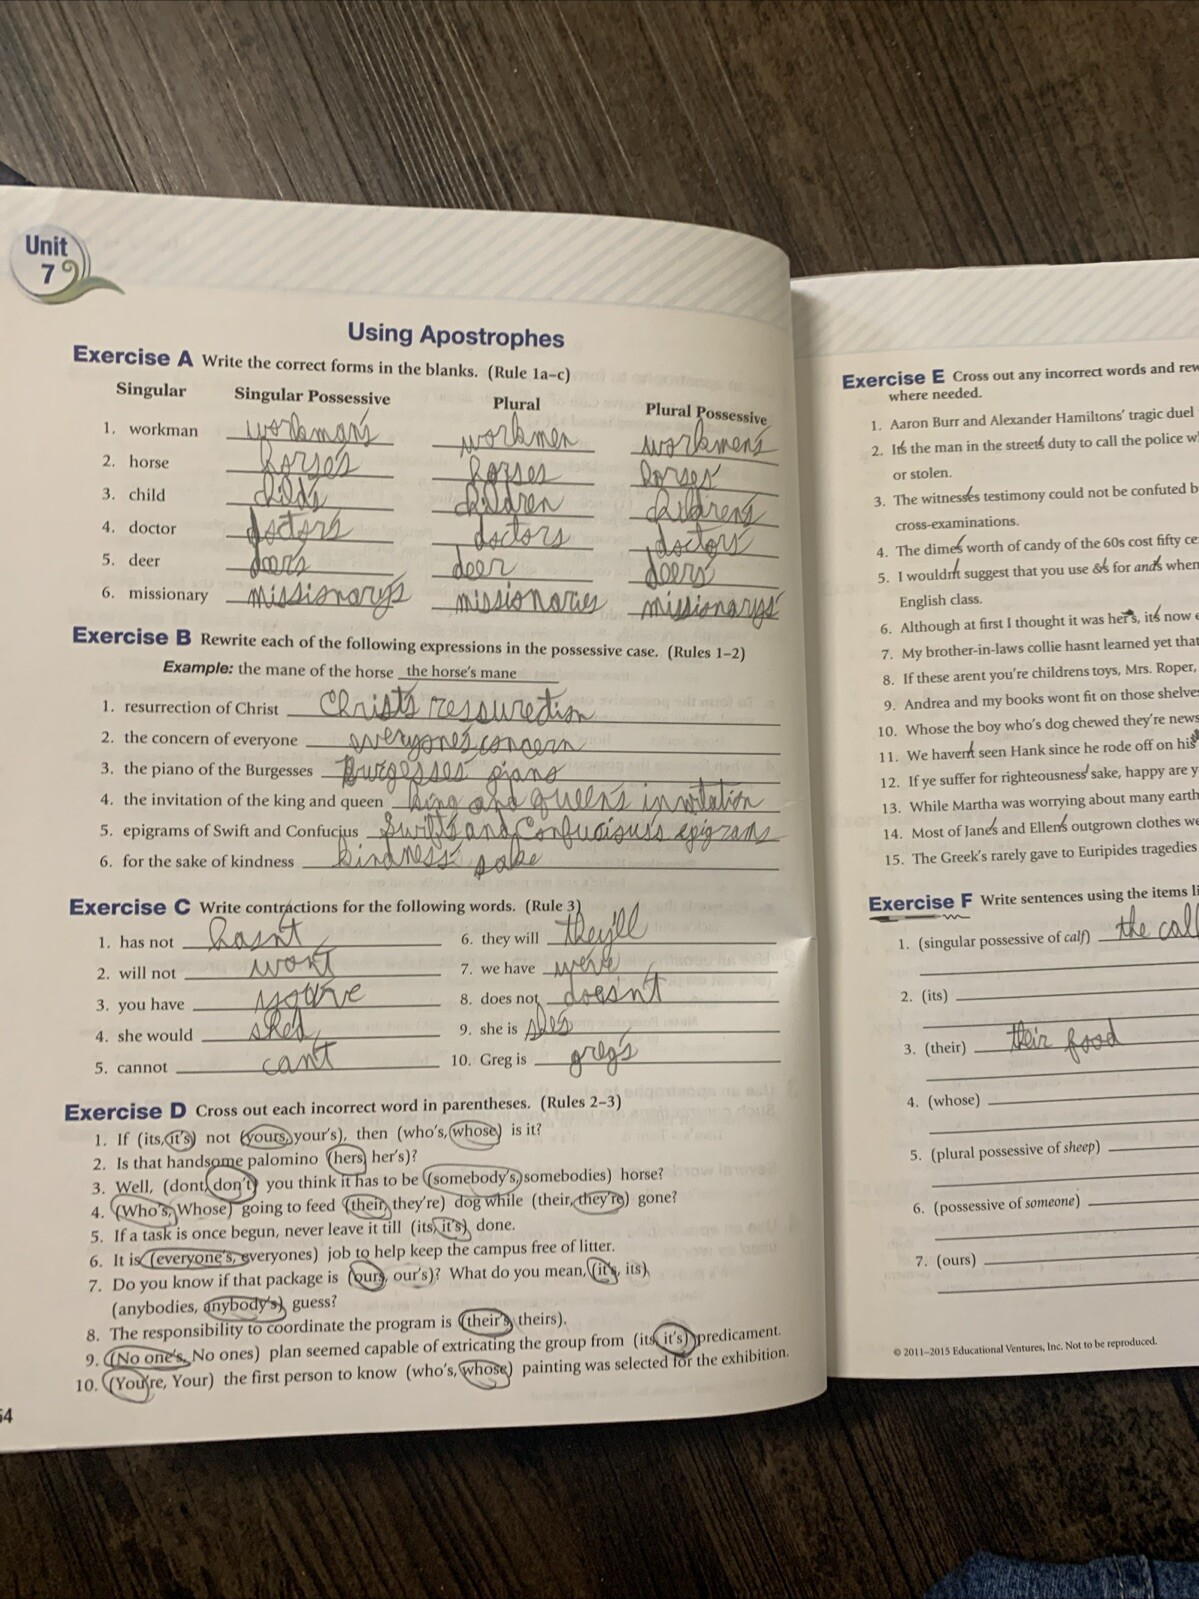 Unit
7
Using Apostrophes
Exercise A Write the correct forms in the blanks. (Rule 1a–c)
Singular Singular Possessive Plural Plural Possessive
1. workman workman's workmen workmen's
2. horse horse's horses horses'
3. child child's children children's
4. doctor doctor's doctors doctors'
5. deer deer's deer deers'
6. missionary missionary's missionaries missionarys'
Exercise B Rewrite each of the following expressions in the possessive case. (Rules 1–2)
Example: the mane of the horse the horse's mane
1. resurrection of Christ Christ's ressuretion
2. the concern of everyone everyone's concern
3. the piano of the Burgesses Burgesses' piano
4. the invitation of the king and queen king and queen's invitation
5. epigrams of Swift and Confucius Swift's and Confucious's epigrams
6. for the sake of kindness kindness' sake
Exercise C Write contractions for the following words. (Rule 3)
1. has not hasn't
2. will not won't
3. you have you've
4. she would she'd
5. cannot can't
6. they will they'll
7. we have we've
8. does not doesn't
9. she is she's
10. Greg is greg's
Exercise D Cross out each incorrect word in parentheses. (Rules 2–3)
1. If (its, it's) not (yours, your's), then (who's, whose) is it?
2. Is that handsome palomino (hers, her's)?
3. Well, (dont, don't) you think it has to be (somebody's, somebodies) horse?
4. (Who's, Whose) going to feed (their, they're) dog while (their, they're) gone?
5. If a task is once begun, never leave it till (its, it's) done.
6. It is (everyone's, everyones) job to help keep the campus free of litter.
7. Do you know if that package is (ours, our's)? What do you mean, (it's, its)
(anybodies, anybody's) guess?
8. The responsibility to coordinate the program is (their's, theirs).
9. (No one's, No ones) plan seemed capable of extricating the group from (its, it's) predicament.
10. (You're, Your) the first person to know (who's, whose) painting was selected for the exhibition.
54
Exercise E Cross out any incorrect words and rew
where needed.
1. Aaron Burr and Alexander Hamiltons' tragic duel
2. It's the man in the street's duty to call the police w
or stolen.
3. The witness's testimony could not be confuted b
cross-examinations.
4. The dime's worth of candy of the 60s cost fifty ce
5. I wouldn't suggest that you use &'s for and's when
English class.
6. Although at first I thought it was hers, it's now
7. My brother-in-laws collie hasnt learned yet that
8. If these arent you're childrens toys, Mrs. Roper,
9. Andrea and my books wont fit on those shelves
10. Whose the boy who's dog chewed they're news
11. We haven't seen Hank since he rode off on his
12. If ye suffer for righteousness' sake, happy are y
13. While Martha was worrying about many earth
14. Most of Jane's and Ellen's outgrown clothes we
15. The Greek's rarely gave to Euripides tragedies
Exercise F Write sentences using the items li
1. (singular possessive of calf) the cal
2. (its)
3. (their) their food
4. (whose)
5. (plural possessive of sheep)
6. (possessive of someone)
7. (ours)
© 2011–2015 Educational Ventures, Inc. Not to be reproduced.